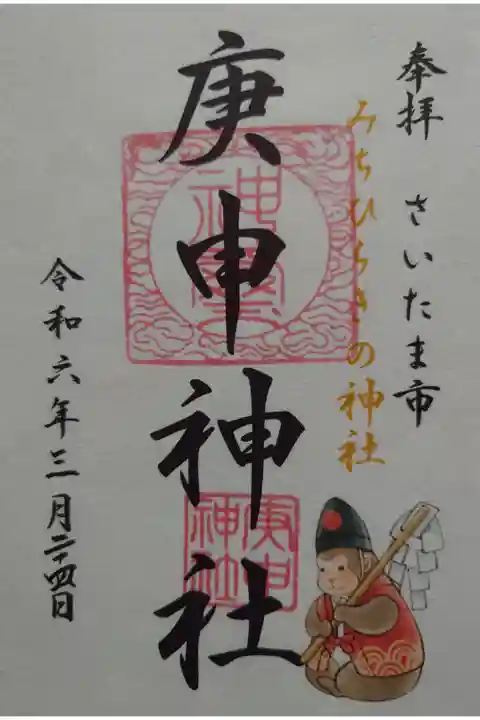 奉拝 さいたま市
みちひらきの神社
庚申神社
神璽
庚申神社
令和六年三月二十四日